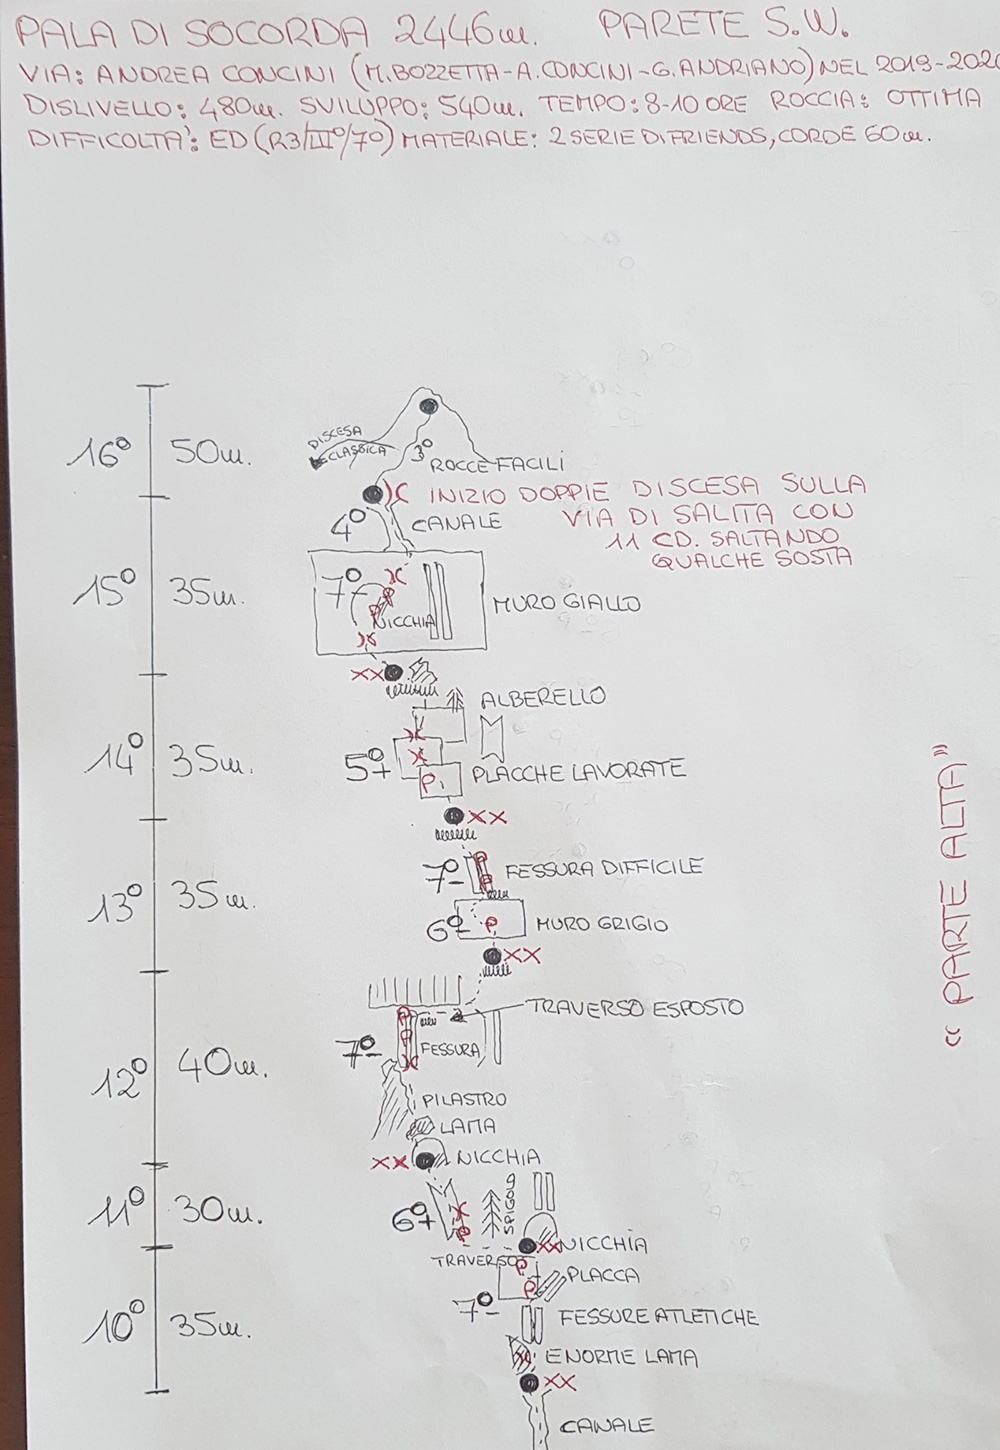 PALA DI SOCORDA 2446m. PARETE S.W.
VIA: ANDREA CONCINI (M.BOZZETTA-A.CONCINI-G.ANDRIANO) NEL 2019-2020
DISLIVELLO: 480m. SVILUPPO: 540m. TEMPO: 8-10 ORE ROCCIA: OTTIMA
DIFFICOLTA': ED (R3/III°/7°) MATERIALE: 2 SERIE DI FRIENDS, CORDE 60m.
16° 50m.
DISCESA
CLASSICA
3°
ROCCE FACILI
INIZIO DOPPIE DISCESA SULLA
VIA DI SALITA CON
11 CD. SALTANDO
QUALCHE SOSTA
4° CANALE
15° 35m.
7°
NICCHIA
MURO GIALLO
XX
ALBERELLO
14° 35m.
5°+
P.
PLACCHE LAVORATE
XX
13° 35m.
7°-
FESSURA DIFFICILE
6°-
P
MURO GRIGIO
XX
TRAVERSO ESPOSTO
12° 40m.
7°-
FESSURA
PILASTRO
LAMA
XX NICCHIA
11° 30m.
6°+
SPIGOLO
XX NICCHIA
TRAVERSO
P
P
PLACCA
10° 35m.
7°-
FESSURE ATLETICHE
ENORME LAMA
XX
CANALE
"PARTE ALTA"